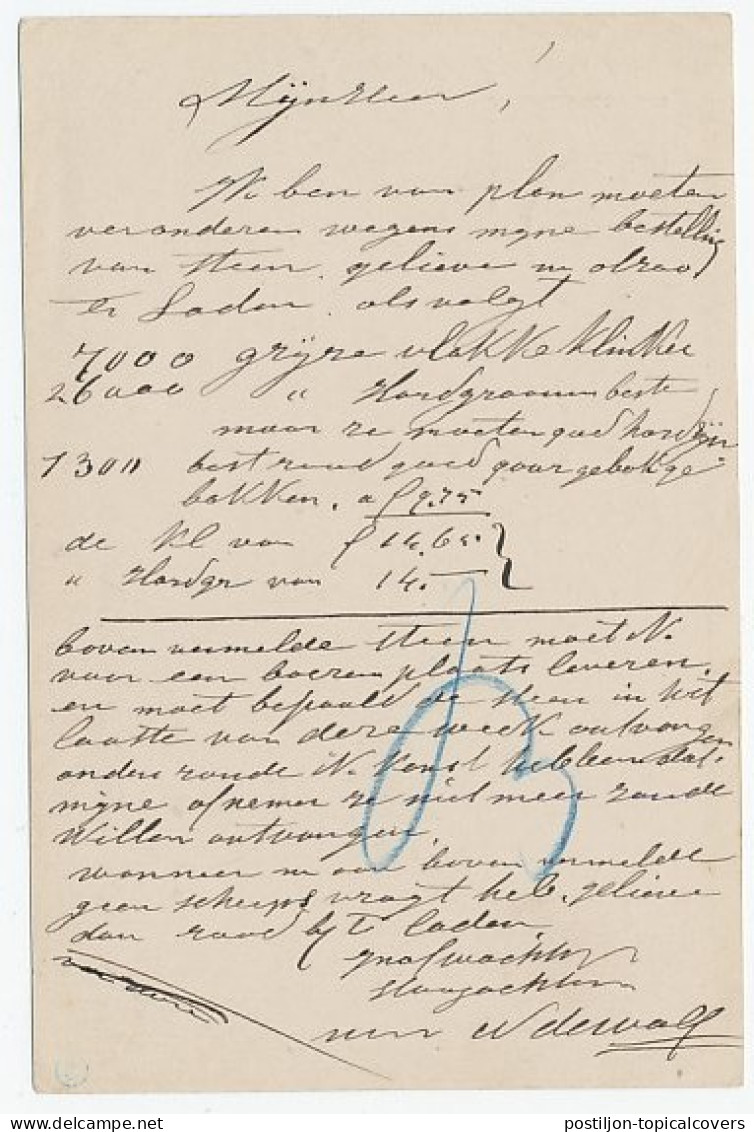 Mijnheer,
Ik ben van plan moeten
veranderen wegens mijne bestelling
van steen. gelieve u
te Laden. als volgt
7000 grijze vlakke klinker
26000 " Hardgraauw beste
maar ze moeten goed hard zijn
1300 best rood goed gaar ge
bakken. a f 9.75
de Kl van f
" Hardgr van 14.—
boven vermelde steen moet ik
voor een boeren plaats leveren.
en moet bepaald de steen in het
laatste van deze week ontvangen
anders zoude ik konst hebben dat.
mijne afnemer ze niet meer zoude
Willen ontvangen.
wanneer u aan boven vermelde
geen scheeps vragt heb. gelieve
dan rood bij te laden.
Inafwachting
Hoogachtend
uwe
postiljon-topicalcovers